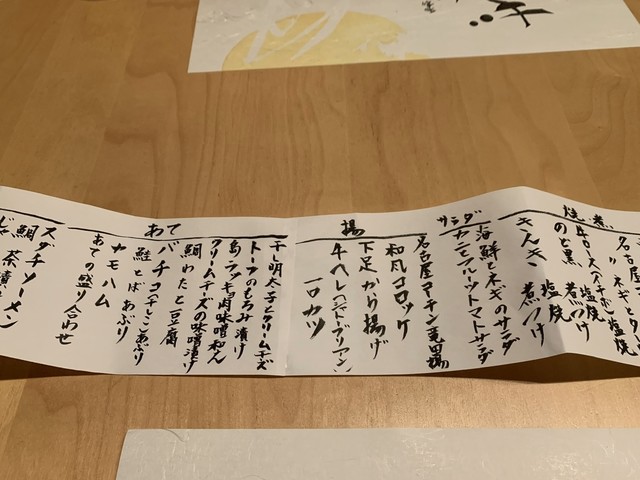 焼 煮
〃 ネギと
牛ロース(イチボ) 塩焼
のど黒 塩焼 煮つけ
きんき 塩焼 煮つけ
サラダ
海鮮とネギのサラダ
カニとフルーツトマトサラダ
揚
名古屋コーチン竜田揚
和風コロッケ
下足から揚げ
牛ヘレ(シャトーブリアン)
一口カツ
あて
干し明太子とクリームチーズ
トーフのもろみ漬け
島ラッキョ肉味噌和え
クリームチーズの味噌漬け
鯛わたと豆腐
バチコ(干しこ)あぶり
鮭とばあぶり
カモハム
あての盛り合わせ
スダチソーメン
鯛茶漬